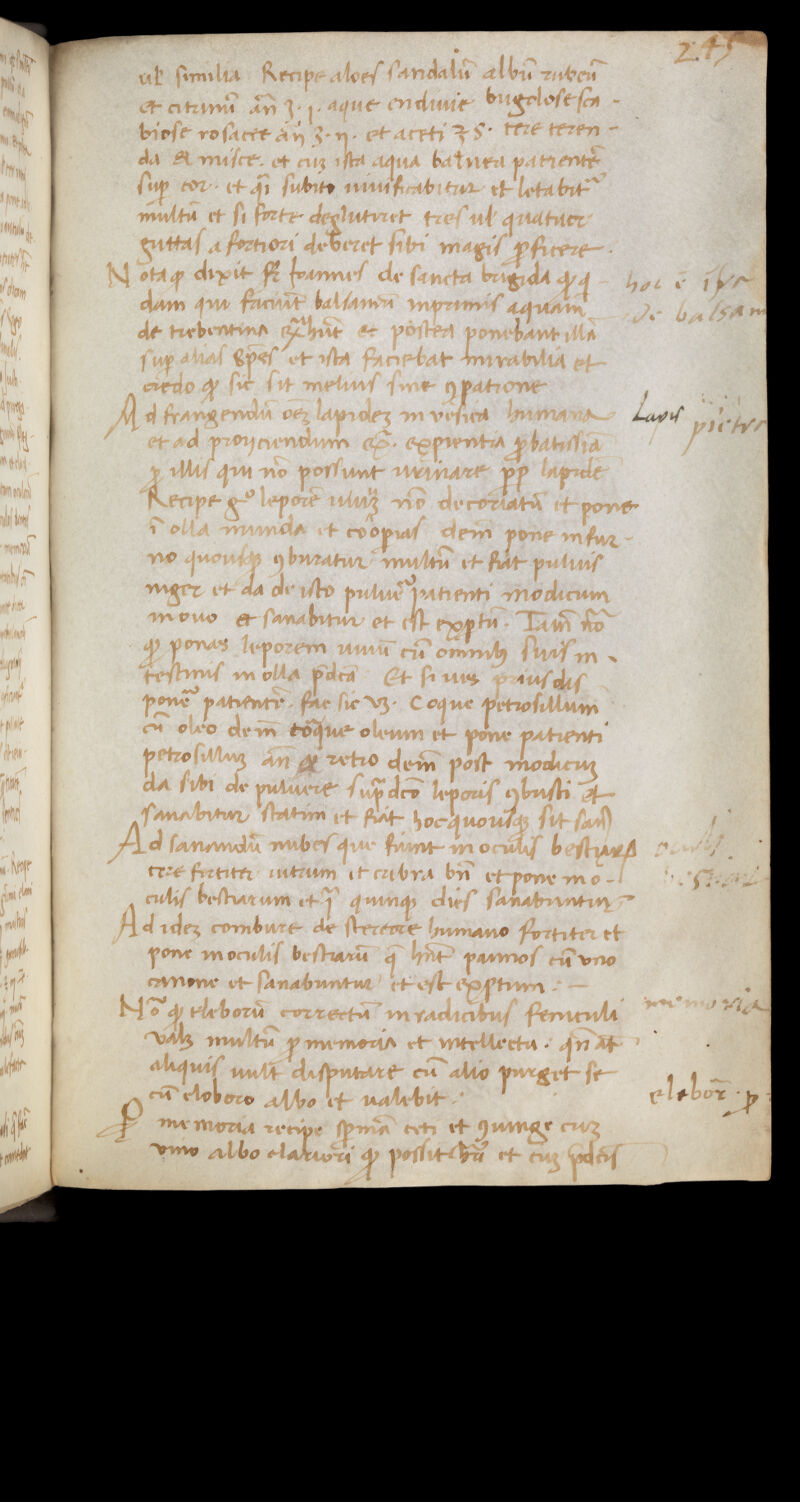 245
ul̄ similia Recipe aloes sandalū albū rubeū
et citrinū añ ʒ. j. aque endiuie buglose sca-
biose rosacee añ ʒ. ij. et aceti ʒ s. tere teren-
da et misce. et cuȝ ista aqua balnea patientē
sup cor. et subito uiuificabitur et letabit᷑
multū et si forte deglutiret tres ul̄ quatuor
guttas a fortiori deberet sibi magis ꝓficere.
Nota ꝙ dixit fr̄ Joannes de sancta brigida ꝙ q-
dam qui faciūt balsamū inprimis aquam
de trebentina et postea ponebant illā
sup alias spēs et ista faciebat mirabilia et
credo ꝙ sic sit melius sine ꝯpatione
Ad frangendū oēȝ lapideȝ in vesica humana
et ad proijciendum exᵃ. expientia ꝓbatissīa
ꝓ illis qui nō possunt urinare ꝓp lapidē
Recipe leporē uiuȝ nō decoriatū et pone
ī olla munda et coōpias dem̄ pone in fur-
no quousqȝ ꝯburatur multū et fiat puluis
niger et da de isto puluere patienti modicum
in ouo et sanabitur et est exptū. Tam̄ nᵒ
ꝙ ponas leporem uiuū cū omnibȝ suis in-
testinis in olla p̄dcā. Et si uis prius dis
ponē patientē. fac sic vȝ. Coque petrosillum
cū oleo dem̄ coque oleum et pone patienti
petrosilluȝ añ retro dem̄ post modicuȝ
da sibi de puluere sup̄dcō leporis ꝯbusti et
sanabitur statim et fiat hoc quousqȝ sit san
Ad sanandū nubes que fiunt in oculis bestiarȝ
tere fortiter uitrum et cribra bn̄ et pone in o-
culis bestiarum et quinqȝ dies sanabuntur
Ad ideȝ combure de stercore humano fortiter et
pone in oculis bestiarū q̄ hn̄t pannos cū uno
canone et sanabuntur et est exptum.
Nᵒ ꝙ eleborū correctū in radicibus feniculi
valȝ multū ꝓ memoria et intellectu. qn̄ at̄
aliquis uult disputare cū alio purget se
cū eleboro albo et ualebit.
Pro
memoria recipe spmā ceti et ꝯiunge cuȝ
uino albo clariori ꝙ possit et cuȝ p̄dcīs
hoc ē
de balsam
Lapis pietra
oculis
bestiarū
memoria
elebor ꝓ